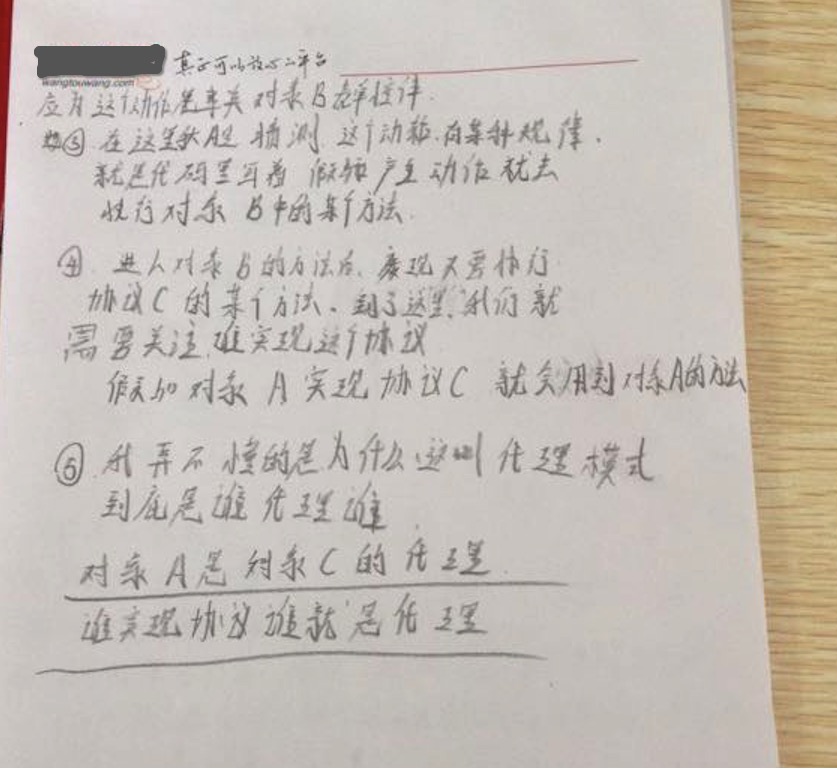 真正可以放心的平台
wangtouwang.com
应为这个动作是来关对象B在掌控
③ 在这里我A还 猜测 这个动作,有某种规律.
就是代码里写着 假如 产生 动作 就去
执行对象 B中的某个方法.
④ 进入对象B的方法后,发现又要执行
协议C的某个方法.到了这里,我们就
需要关注,谁实现这个协议
假如 对象 A 实现 协议C 就会用到对象A的方法
⑤ 我弄不懂的是为什么,这叫 代理模式
到底是谁代理谁
对象 A是 对象C 的 代理.
谁实现协议 谁就是代理